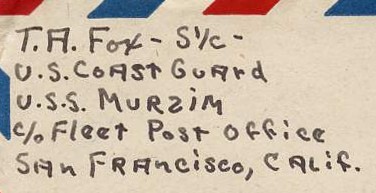 T.A. Fox - S1/c -
U.S. Coast Guard
U.S.S. Murzim
c/o Fleet Post Office
San Francisco, Calif.